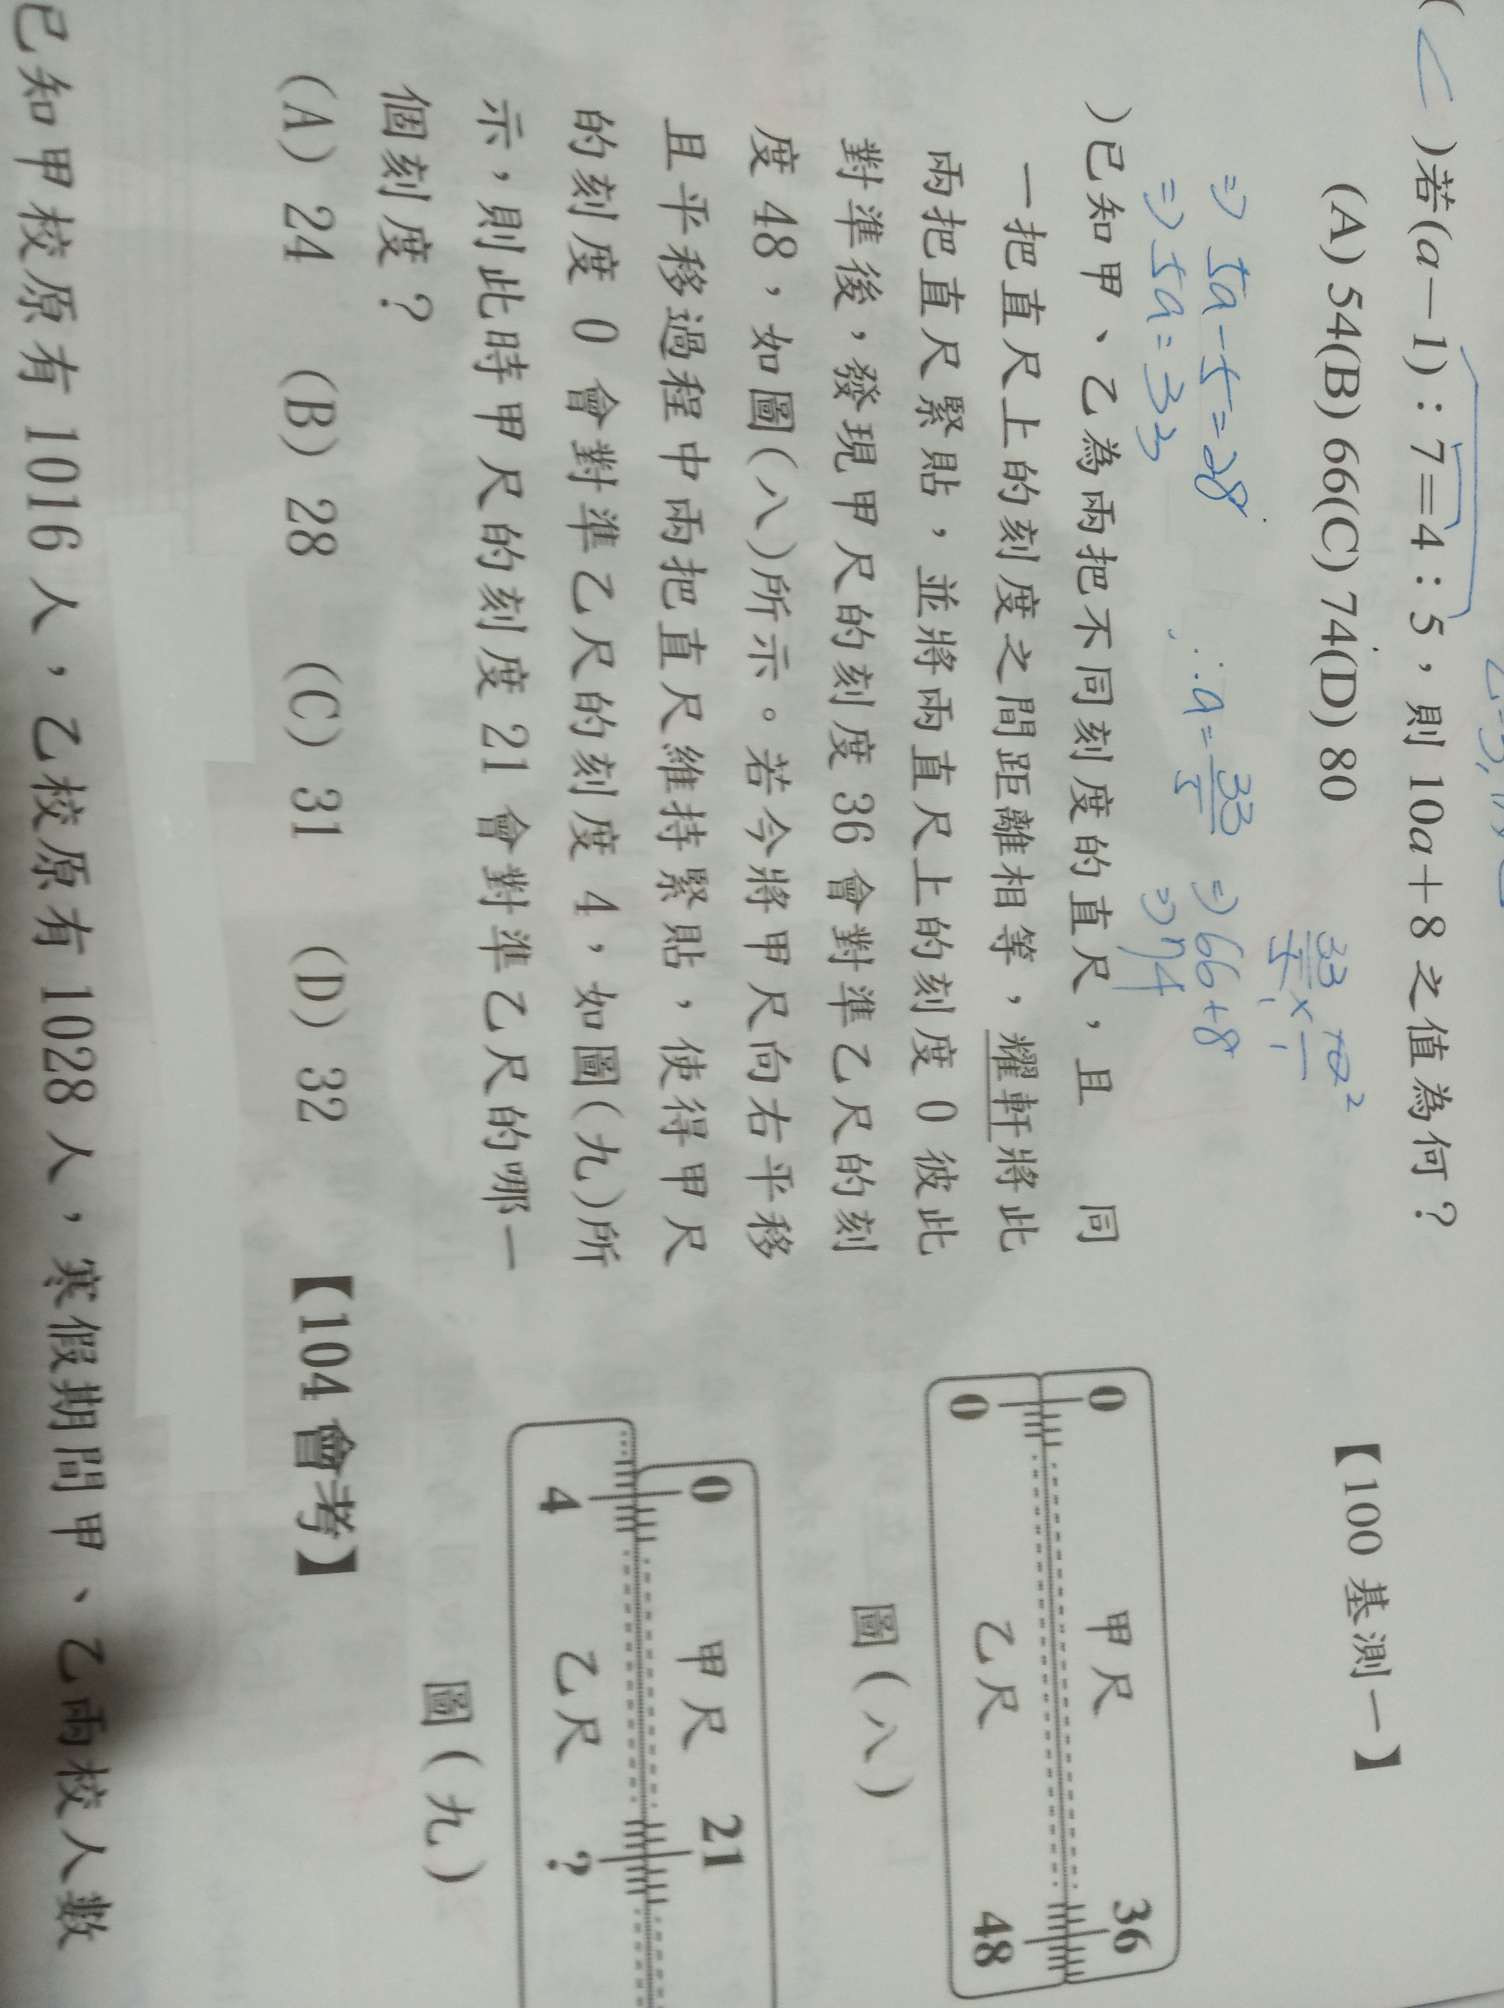 ( C )若(a－1)：7＝4：5，則 10a＋8 之值為何？
(A) 54(B) 66(C) 74(D) 80
【100 基測一】
33
⇒ 5a－5＝28
∴ a＝33/5 ⇒ 66+8
⇒ 5a＝33
⇒ 74
)已知甲、乙為兩把不同刻度的直尺，且 同
一把直尺上的刻度之間距離相等，耀軒將此
兩把直尺緊貼，並將兩直尺上的刻度 0 彼此
對準後，發現甲尺的刻度 36 會對準乙尺的刻
度 48，如圖(八)所示。若今將甲尺向右平移
且平移過程中兩把直尺維持緊貼，使得甲尺
的刻度 0 會對準乙尺的刻度 4，如圖(九)所
示，則此時甲尺的刻度 21 會對準乙尺的哪一
個刻度？
(A) 24 (B) 28 (C) 31 (D) 32
【104 會考】
0 甲尺 36
0 乙尺 48
圖(八)
0 甲尺 21
4 乙尺 ?
圖(九)
已知甲校原有 1016 人，乙校原有 1028 人，寒假期間甲、乙兩校人數